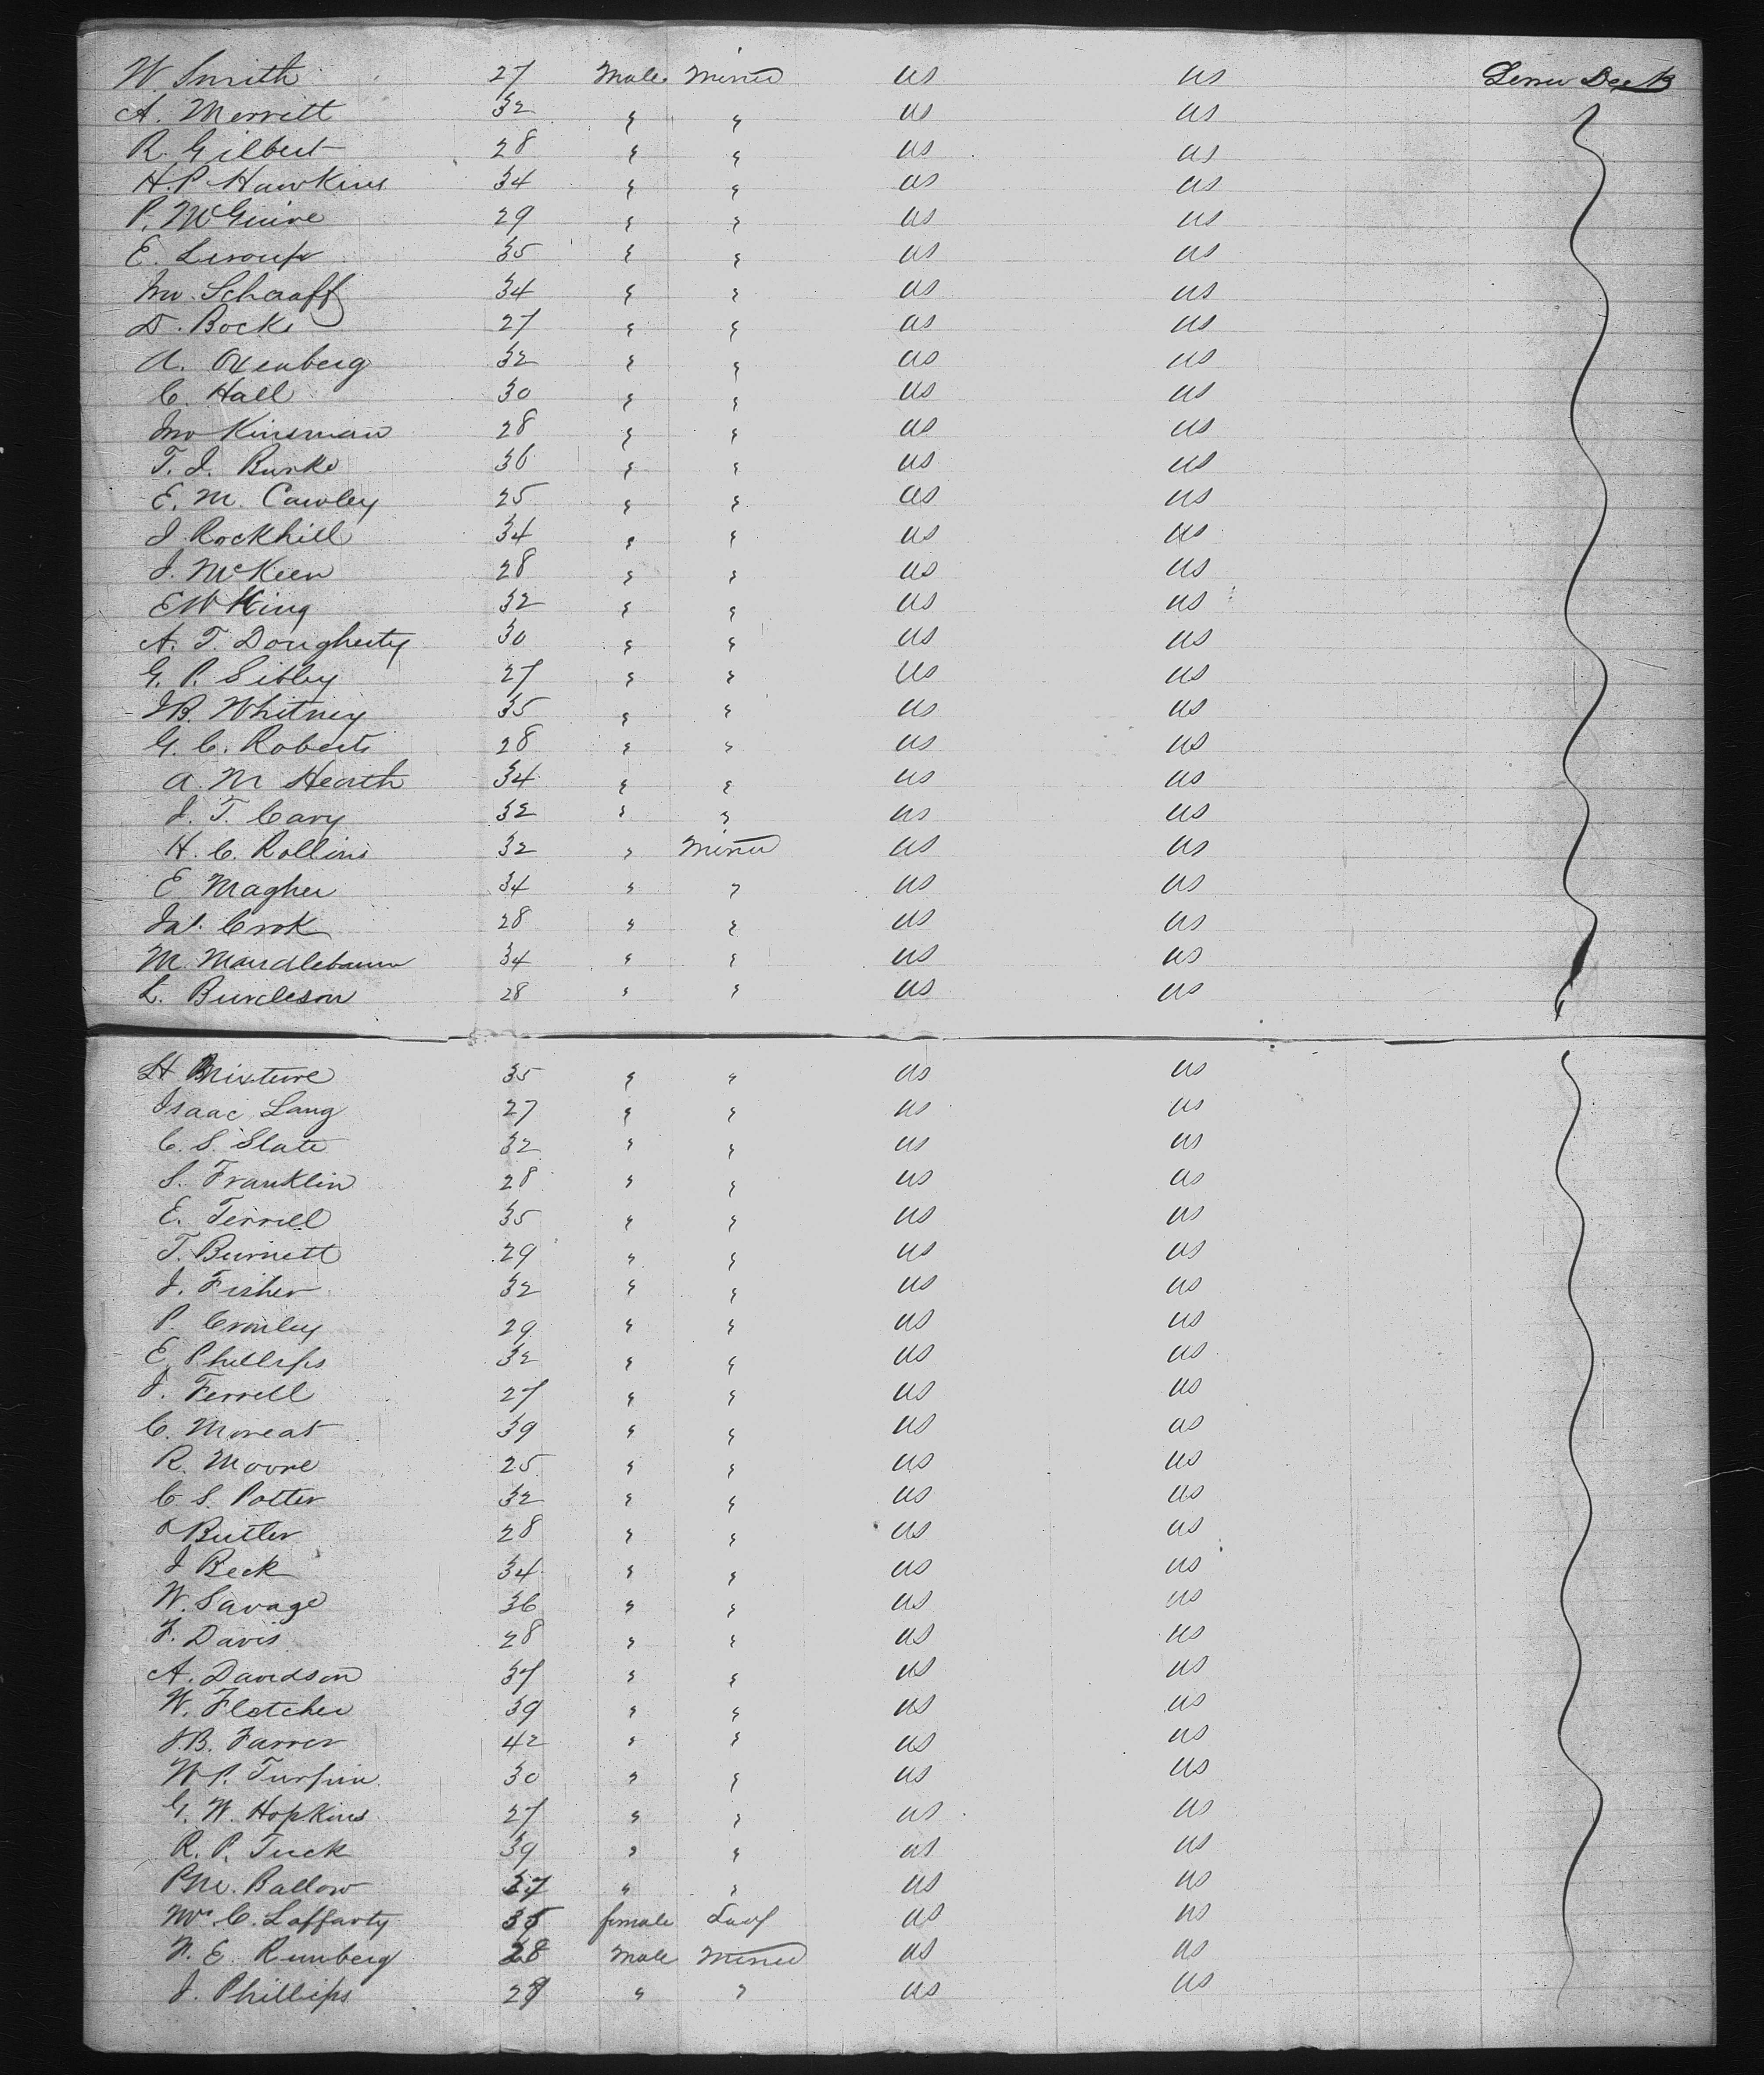 W. Smith 27 Male Miner US US
A. Merritt 32 " " US US
R. Gilbert 28 " " US US
H. P. Hawkins 34 " " US US
P. McGuire 29 " " US US
E. 35 " " US US
Jno. Schaaff 34 " " US US
D. Bock 27 " " US US
A. Oxenberg 32 " " US US
C. Hall 30 " " US US
Jno Kinsman 28 " " US US
T. J. Burke 36 " " US US
E. M. Cawley 25 " " US US
J Rockhill 34 " " US US
J. McKeen 28 " " US US
E W King 32 " " US US
A. T. Dougherty 30 " " US US
G. P. Sibley 27 " " US US
J B. Whitney 35 " " US US
G. C. Roberts 28 " " US US
A. M Heath 34 " " US US
J. T. Cary 32 " " US US
H. C. Rollins 32 " Miner US US
E Magher 34 " " US US
Jas. Crok 28 " " US US
M. Mandlebaum 34 " " US US
L. Burcleson 28 " " US US
H Mixture 35 " " US US
Isaac Lang 27 " " US US
C. S. Slate 32 " " US US
S. Franklin 28 " " US US
E. Terrell 35 " " US US
T. Burnett 29 " " US US
J. Fisher 32 " " US US
P. Cronley 29 " " US US
E. Phillips 32 " " US US
J. Ferrell 27 " " US US
C. Moreat 39 " " US US
R. Moore 25 " " US US
C S. Potter 32 " " US US
Butler 28 " " US US
J Beck 34 " " US US
W. Savage 36 " " US US
F. Davis 28 " " US US
A. Davidson 37 " " US US
W. Fletcher 39 " " US US
J. B. Farrer 42 " " US US
W P. Turpin 30 " " US US
G. W. Hopkins 27 " " US US
R. P. Tuck 39 " " US US
Ballow 37 " " US US
Mrs C. Laffarty 35 female Lady US US
F. E. Rumberg 28 Male Miner US US
J. Phillips 29 " " US US